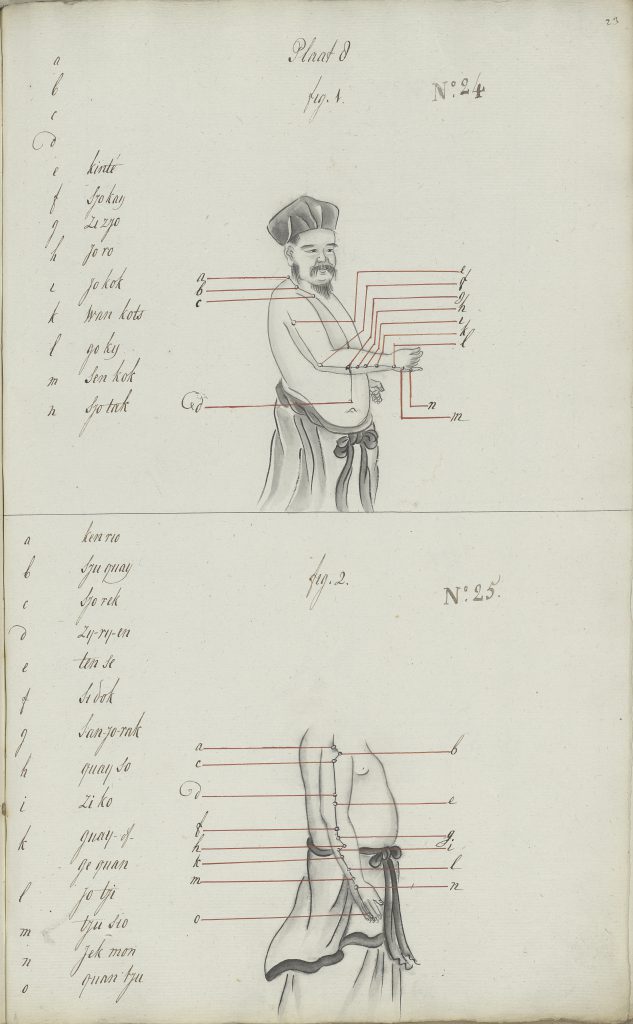 23
Plaat 8
fig. 1.
No. 24
a
b
c
d
e kinté
f szokay
g zizjo
h joro
i jokok
k wan kots
l go ky
m sen kok
n szo tak
a
b
c
d
e
f
g
h
i
k
l
n
m
fig. 2.
No. 25.
a kenrio
b szu quay
c szo rek
d zy-ry-en
e ten se
f si dok
g san-jo-rak
h quay so
i zi ko
k quay-of-
ge quan
l jo tzi
m tzu sio
n jek mon
o quan tzu
a
c
d
f
h
k
m
o
b
e
g
i
l
n